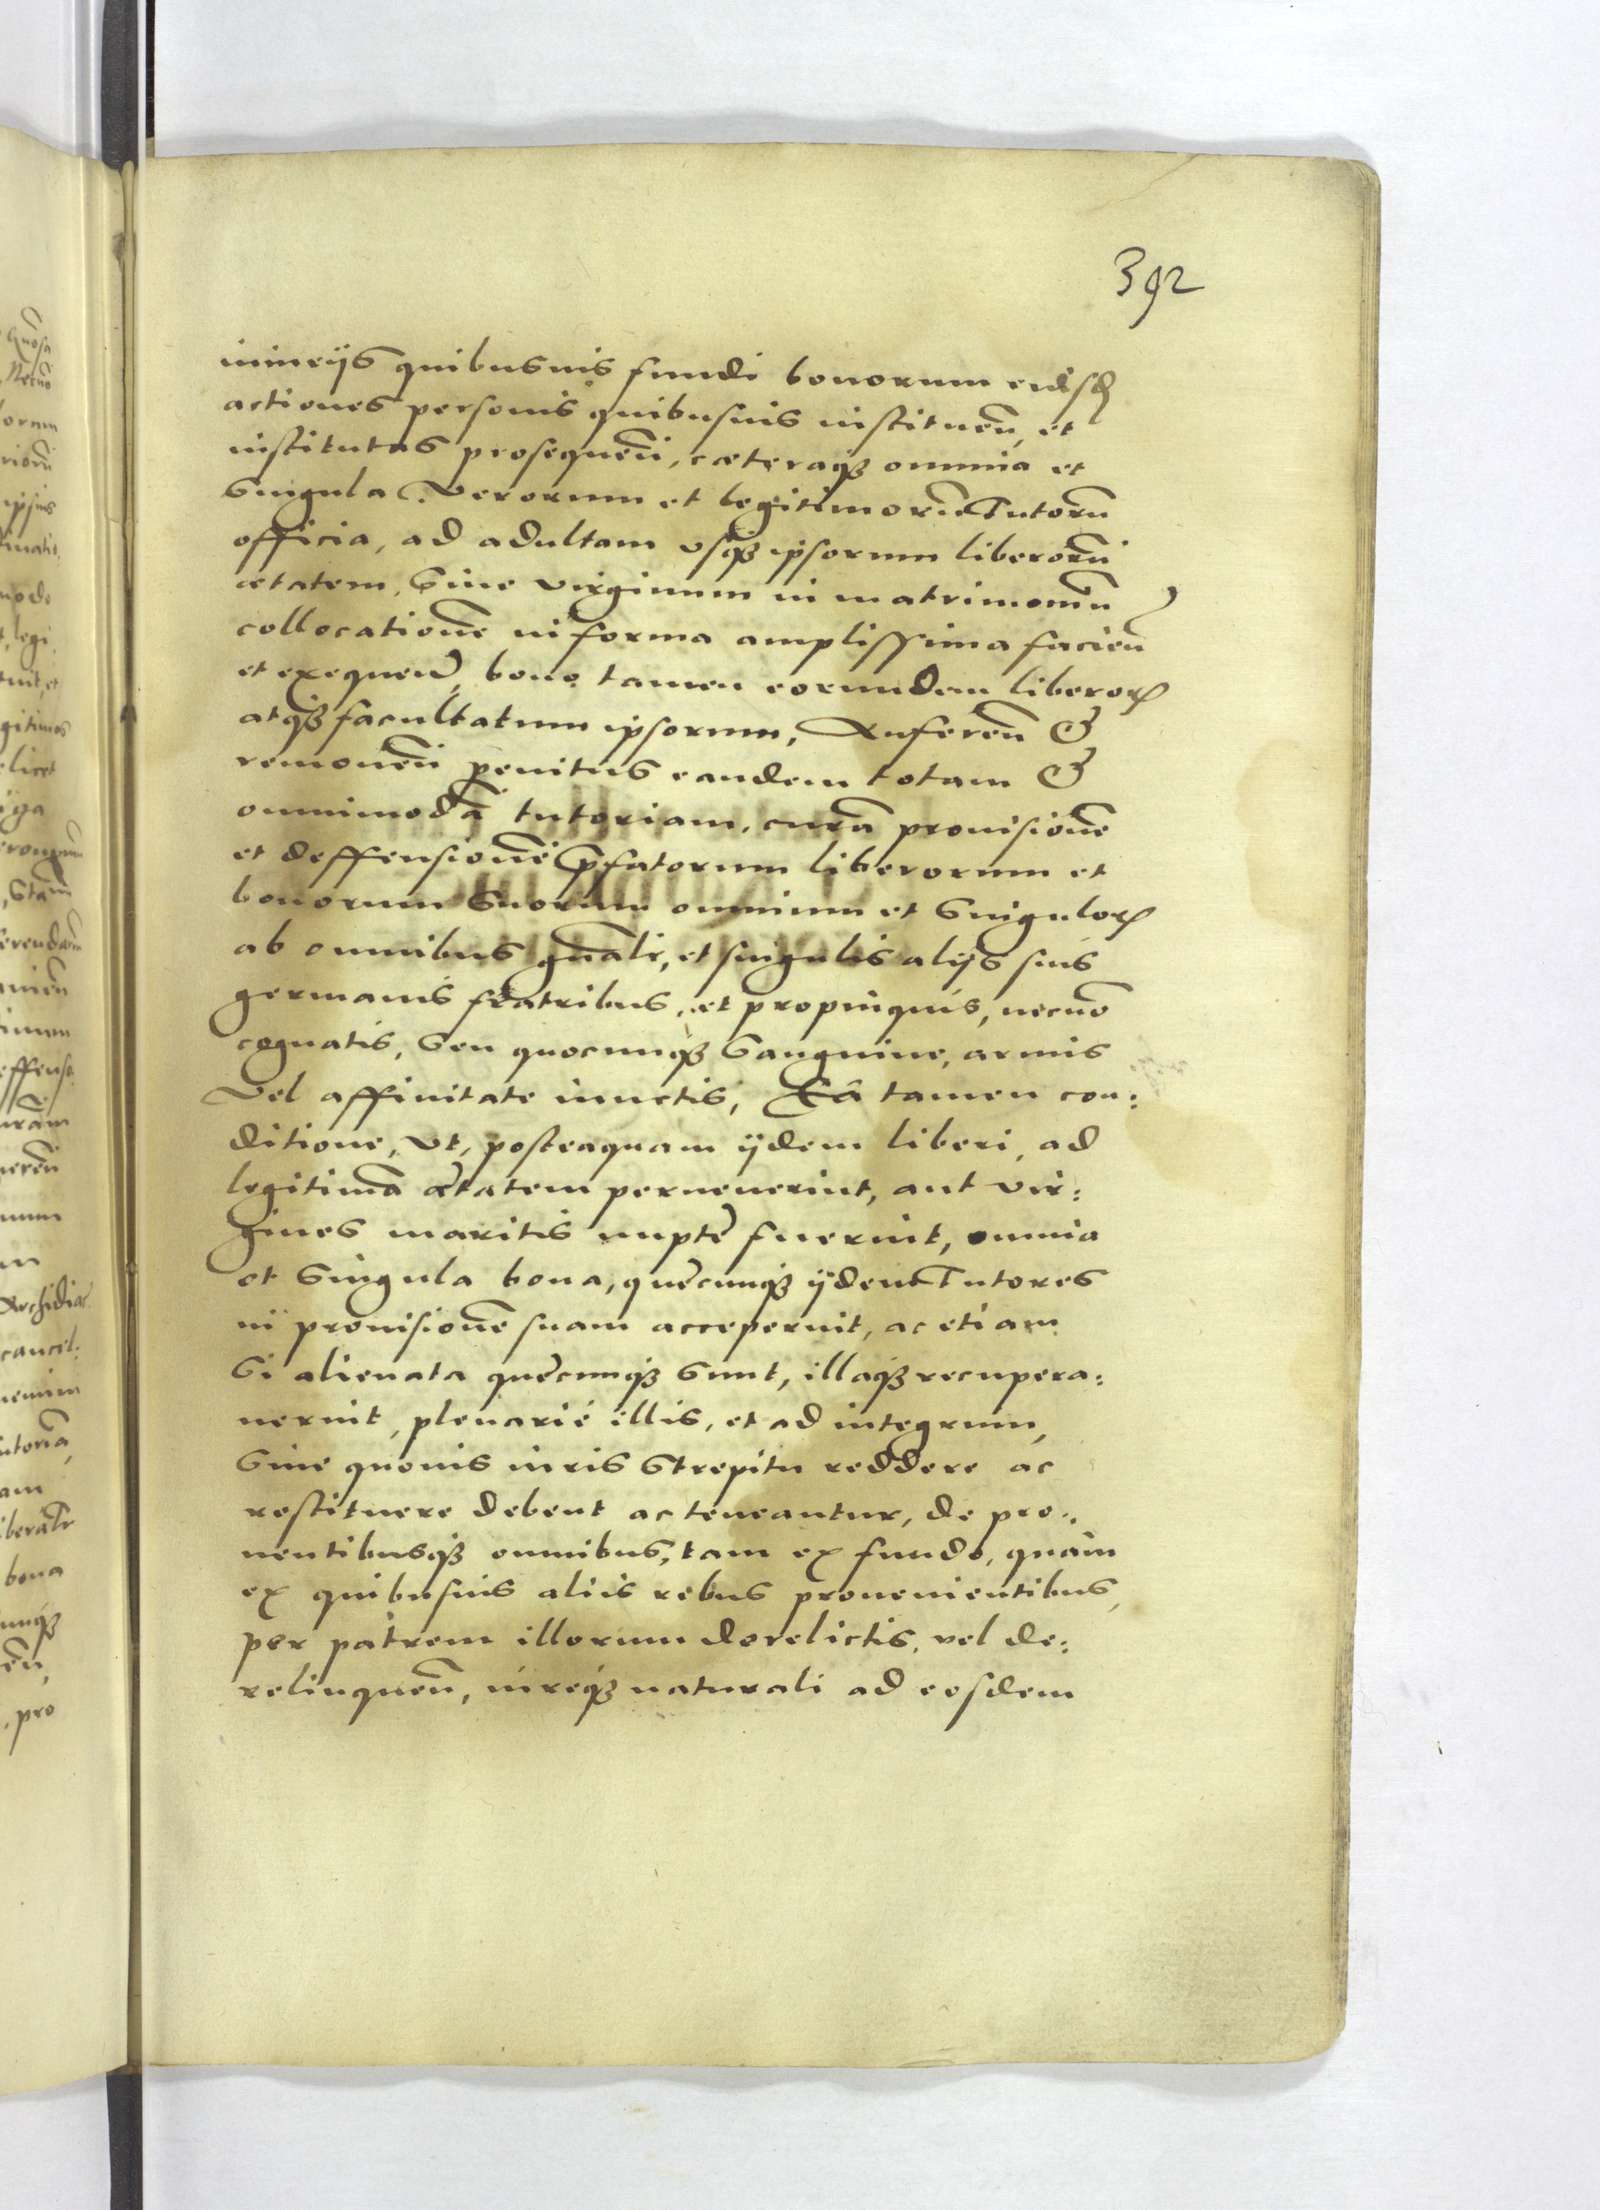 392
iniurijs quibusuis fundi bonorum eiusdē
actiones personis quibusuis instituen̄, et
institutas prosequen̄, cæteraqȝ omnia et
Singula Verorum et legitimorū Tutorū
officia, ad adultam vsqȝ ipsorum liberorū
ætatem, Siue virginum in matrimoniū
collocationē in forma amplissima facien̄
et exequen̄, bono tamen eorundem liberoꝝ
atqȝ facultatum ipsorum, Auferen̄ &
remouen̄ penitus eandem totam &
omnimodā tutoriam, curā prouisionē
et deffensionē p̄fatorum liberorum et
bonorum Suorum omnium et Singuloꝝ
ab omnibus gn̄alr, et singulis alijs suis
germanis fratribus, et propinquis, necnō
cognatis, Seu quocunqȝ Sanguine, armis
Vel affinitate iunctis, Eâ tamen con:
ditione, Vt, posteaquam ijdem liberi, ad
legitimā ætatem peruenerint, aut vir:
gines maritis nuptę fuerint, omnia
et Singula bona, quęcunqȝ ijdem Tutores
in prouisionē suam acceperint, ac etiam
Si alienata quęcunqȝ Sunt, illaqȝ recupera:
uerint, plenarié illis, et ad integrum,
Sine quouis iuris Strepitu reddere ac
restituere debent ac teneantur, de pro:
uentibusqȝ omnibus, tam ex fundo, quàm
ex quibusuis aliis rebus prouenientibus,
per patrem illorum derelictis, vel de:
relinquen̄, iureqȝ naturali ad eosdem